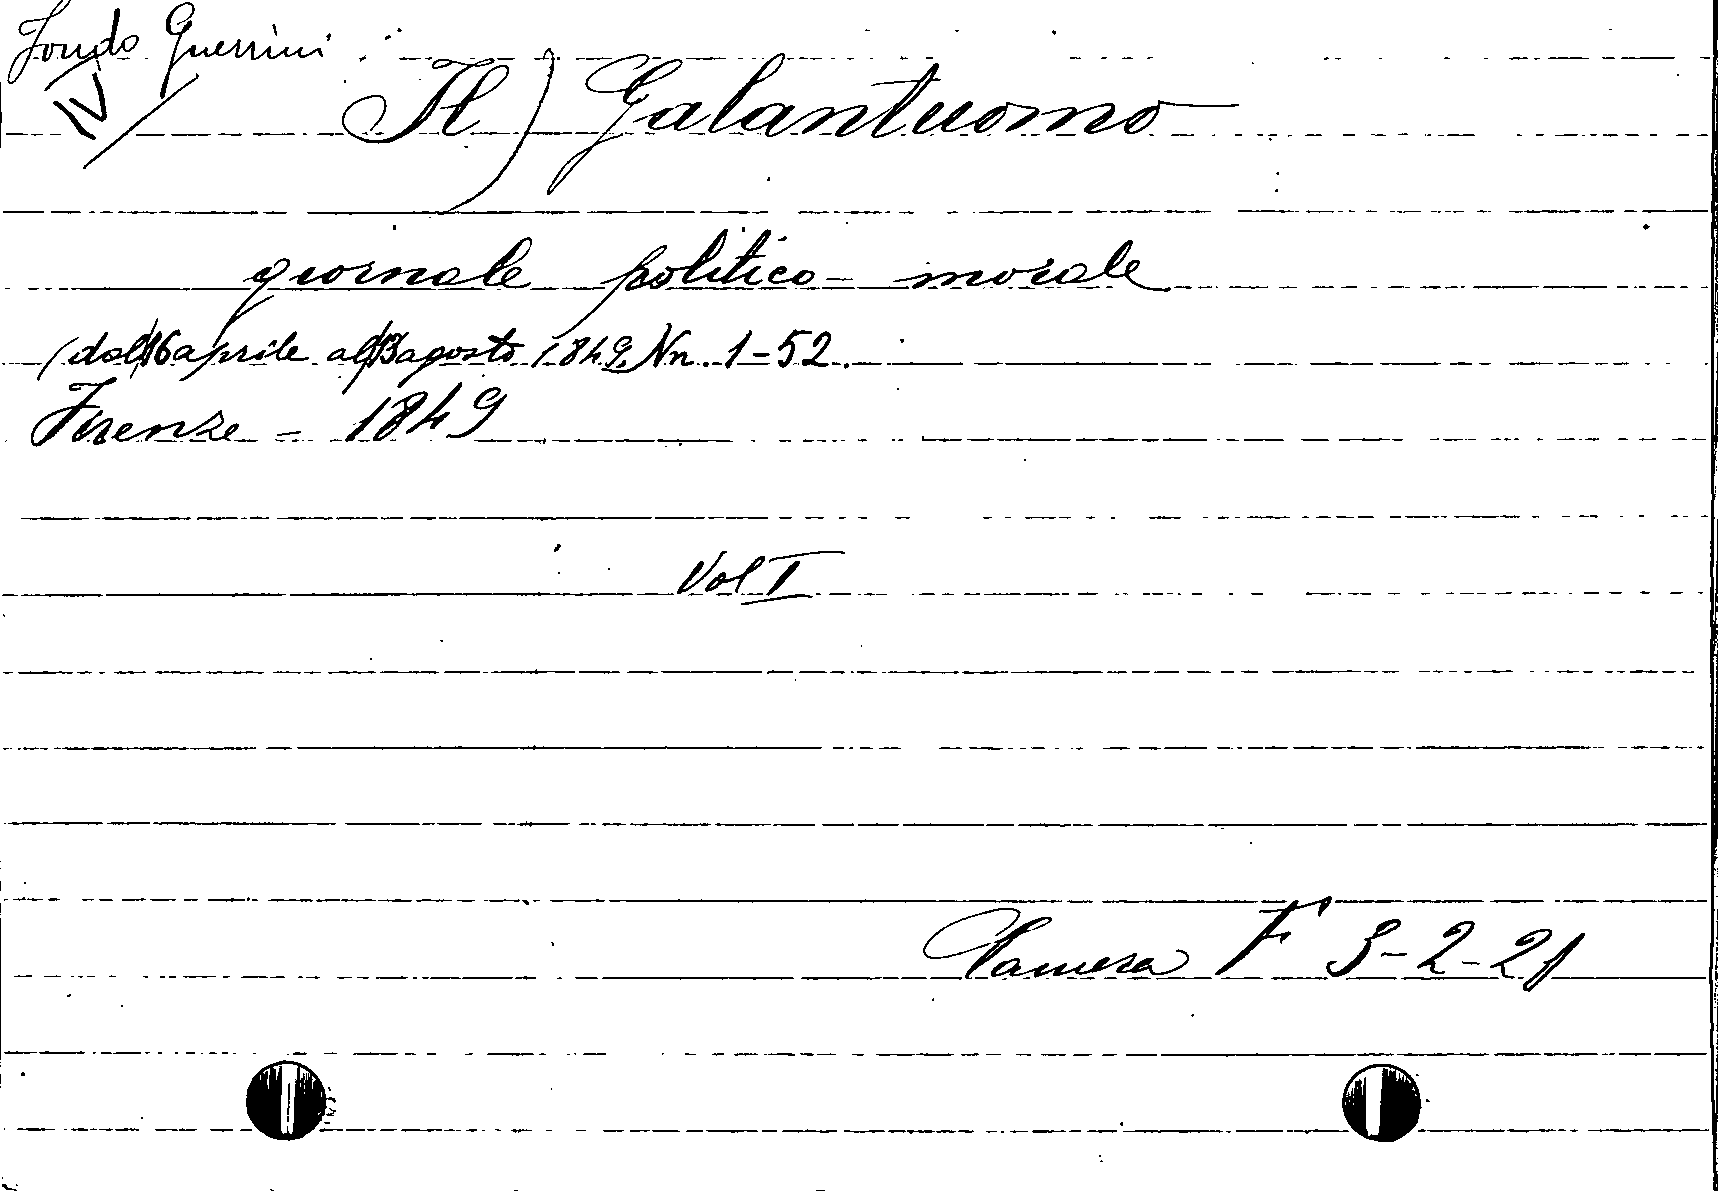 Fondo Guerrini
IV
Il) Galantuomo
giornale politico-morale
(dal 16 aprile al 13 agosto 1849, Nn. 1-52.
Firenze - 1849
Vol I
Camera F 3-2-21